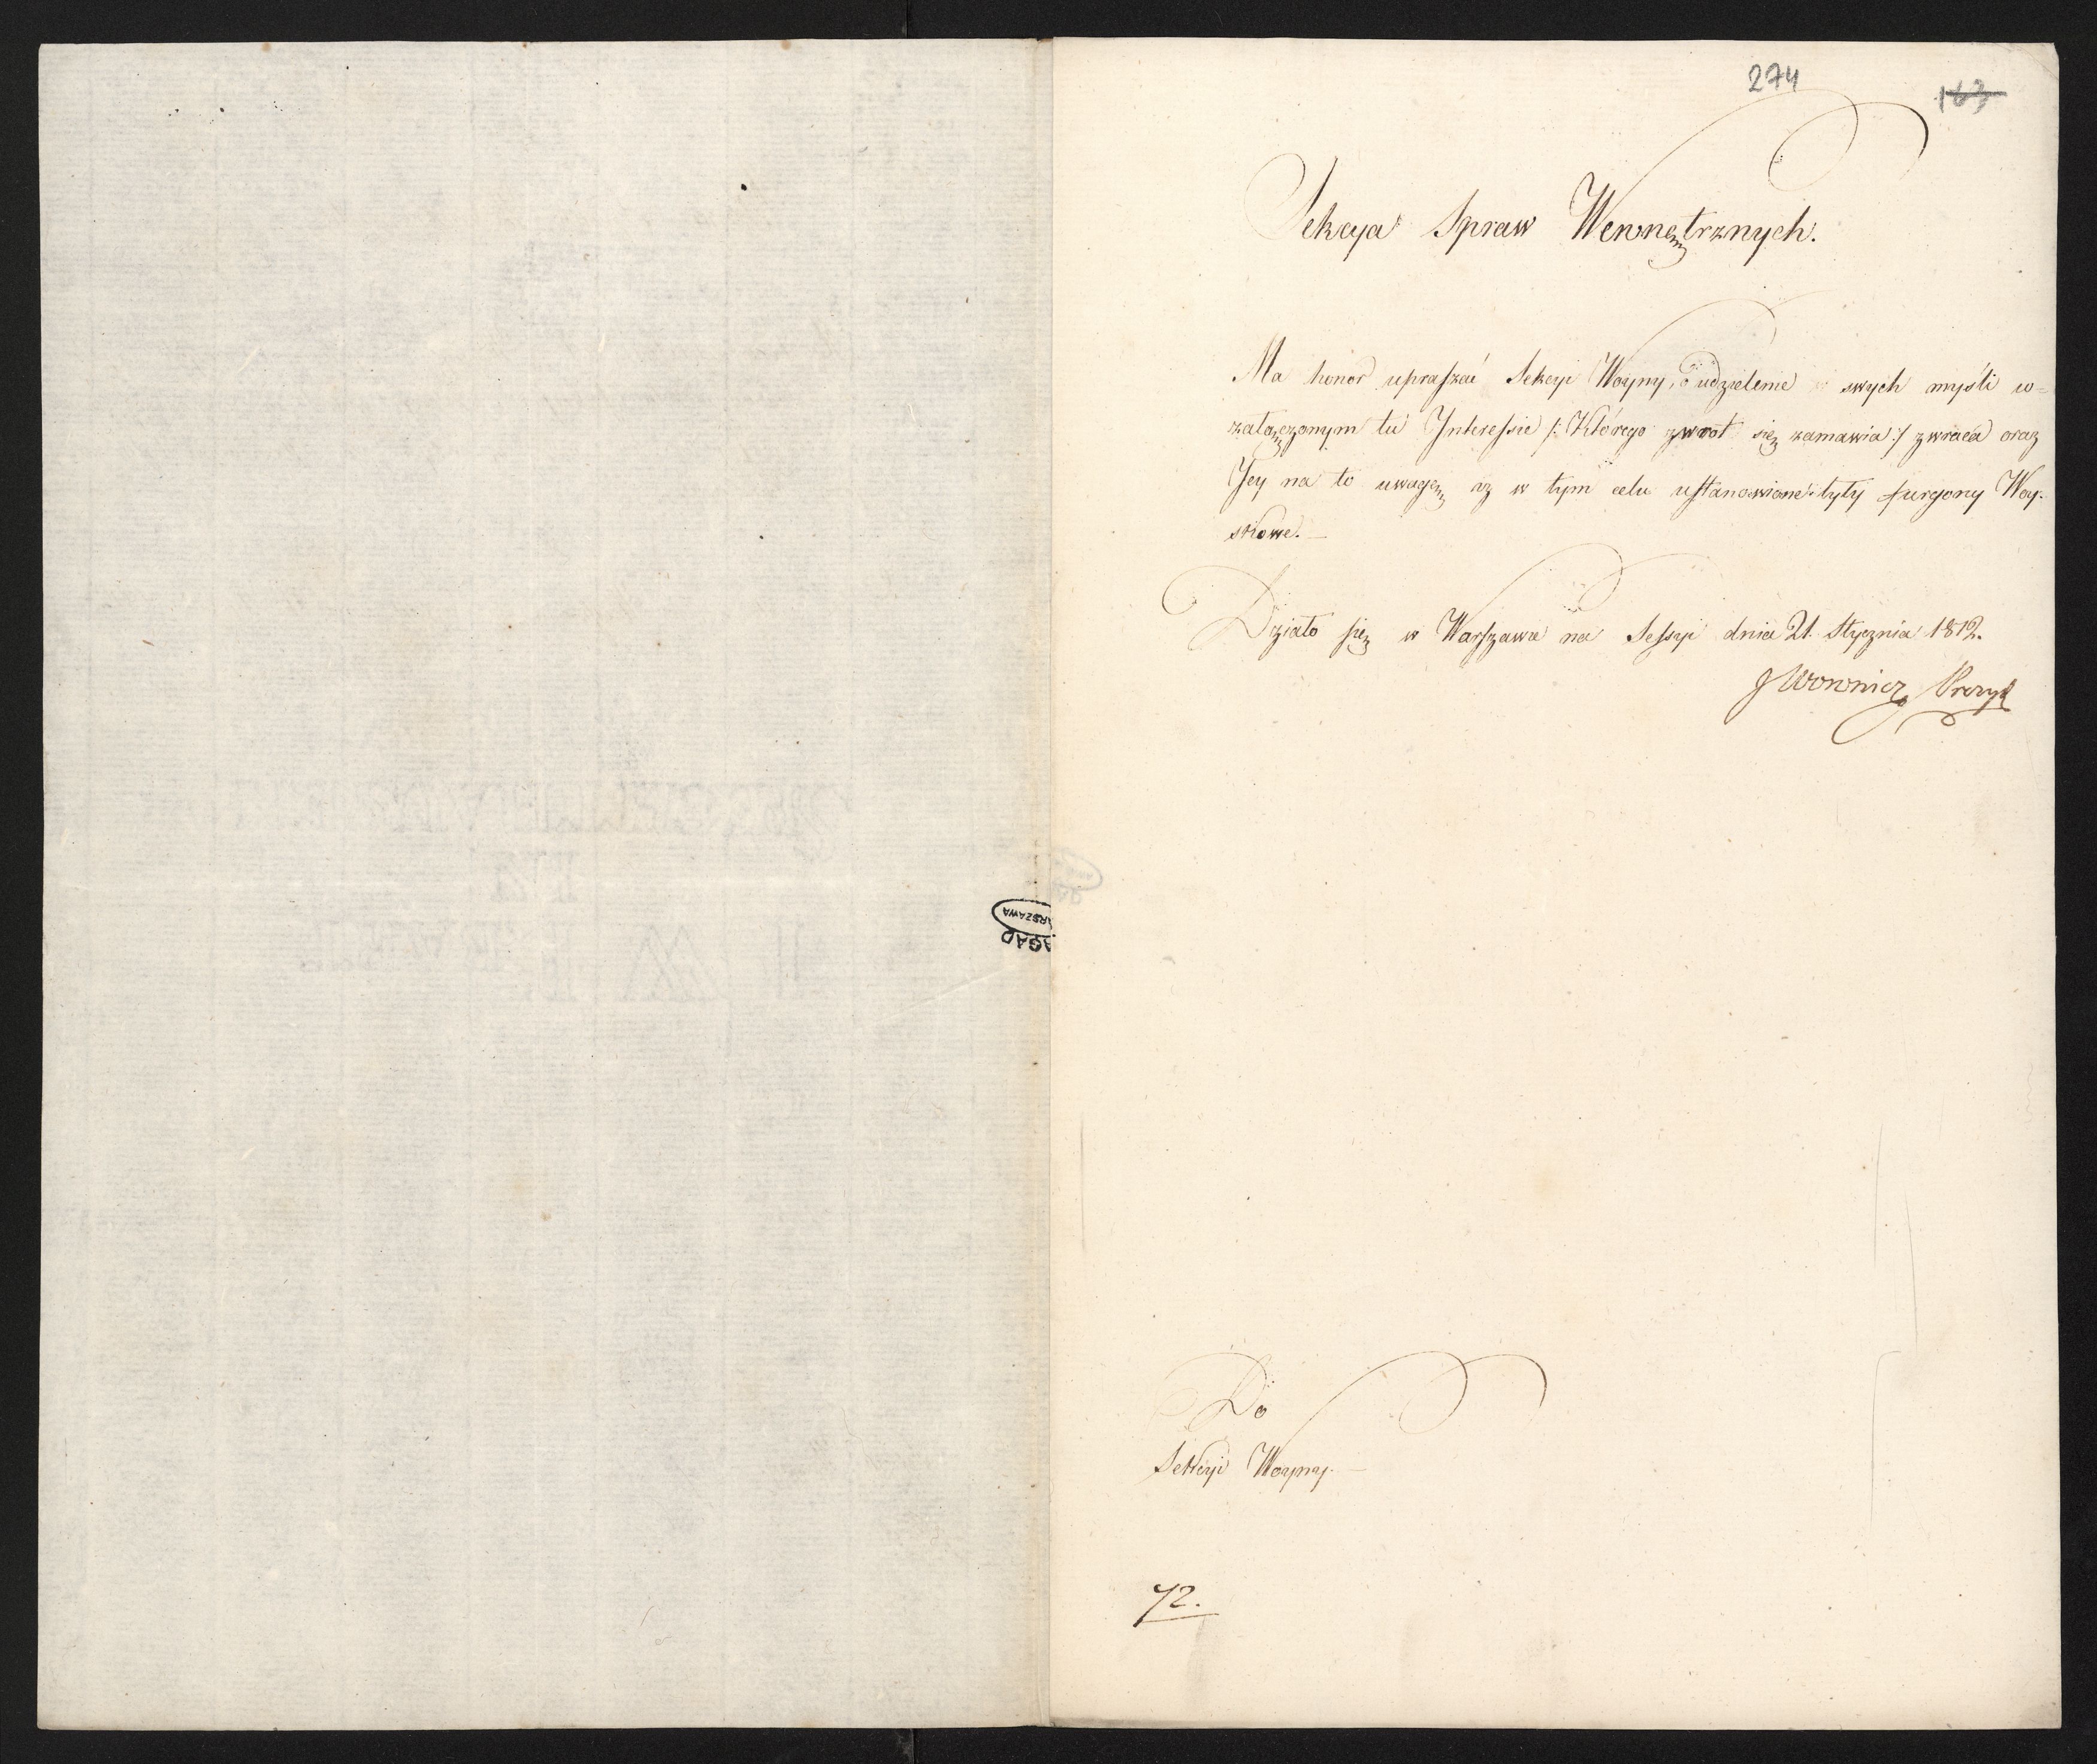 274
163
Sekcya Spraw Wewnętrznych.
Ma honor upraszać Sekcyi Woyny, o udzielenie swych myśli w=
załączonym tu Interessie /: Którego zwrot się zamawia :/ zwraca oraz
Jey na to uwagę, iż w tym celu ustanowione były furgony Woy-
skowe. —
Działo się w Warszawie na Sessyi dnia 21. Stycznia 1812.
J Woronicz Prezyd
AGAD
WARSZAWA
Do
Sekcyi Woyny. —
72.